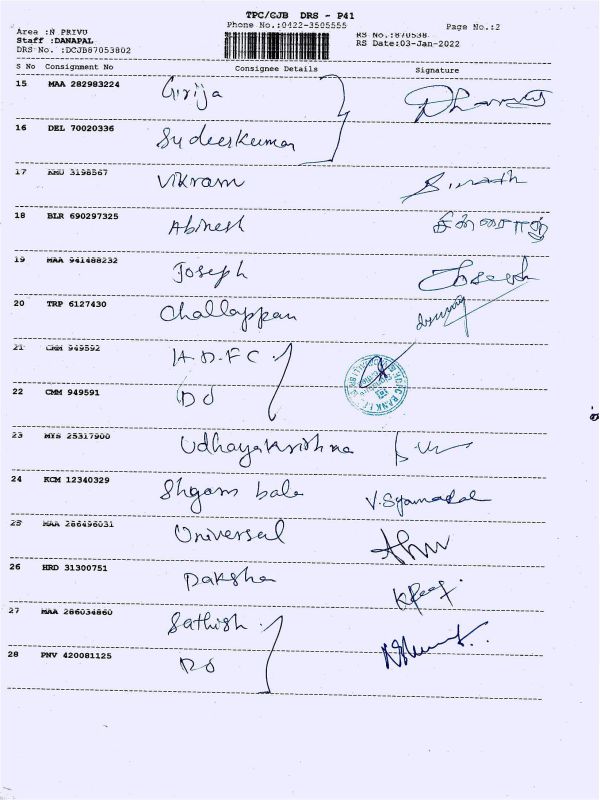 TPC/CJB DRS - P41
Phone No.:0422-3505555
Page No.:2
Area :N PRIVU
Staff :DANAPAL
DRS No. :DCJB87053802
RS No.:870538
RS Date:03-Jan-2022
S No Consignment No Consignee Details Signature
15 MAA 282983224 Girija
16 DEL 70020336 Sudeerkumar
17 3198567 Vikram
18 BLR 690297325 Abinesh
19 MAA 941488232 Joseph Joseph
20 TRP 6127430 Challappan
21 CMM 949592 H.D.F.C
22 CMM 949591 DO
23 MYS 25317900 Udhayakrishna
24 KCM 12340329 Shyam bala V.Syamala
25 MAA 286496031 Universal
26 HRD 31300751 Daksha
27 MAA 286034860 Sathish
28 PNV 420081125 DO